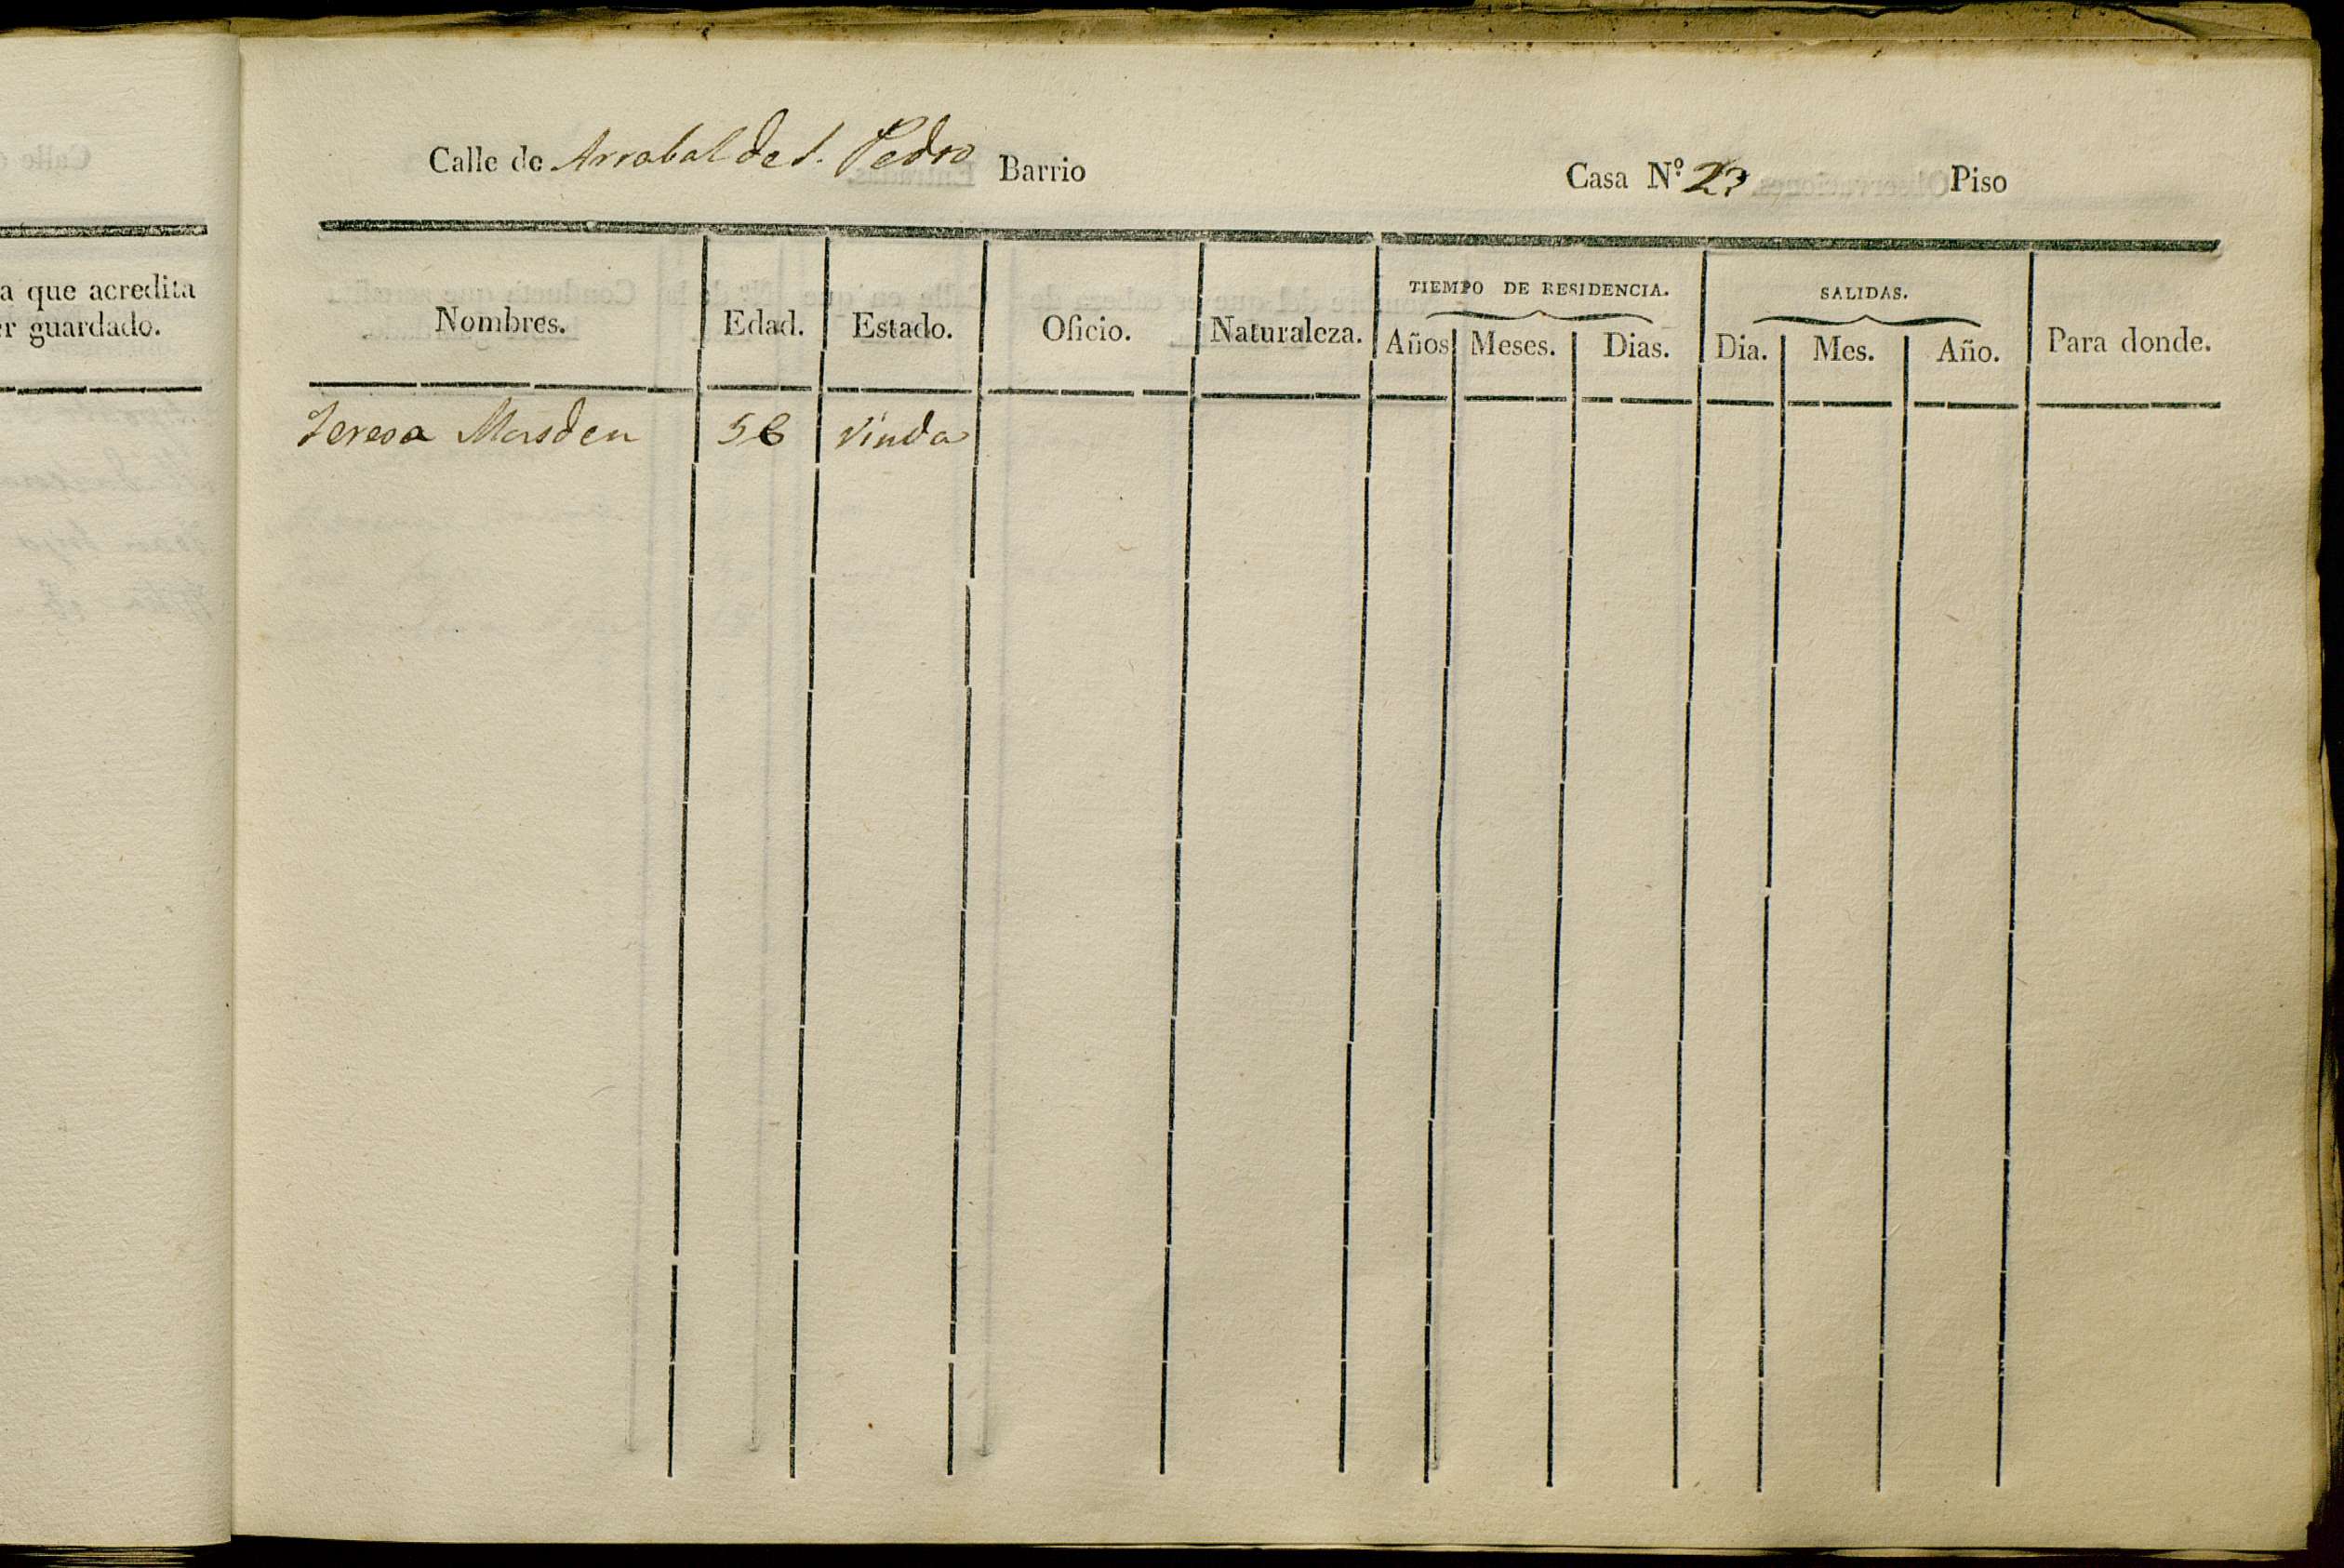 a que acredita
er guardado.
Calle de Arrabal de S. Pedro Barrio Casa N.º 23 Piso
Nombres. Edad. Estado. Oficio. Naturaleza. TIEMPO DE RESIDENCIA. Años Meses. Dias. SALIDAS. Dia. Mes. Año. Para donde.
Teresa Masdeu 56 viuda